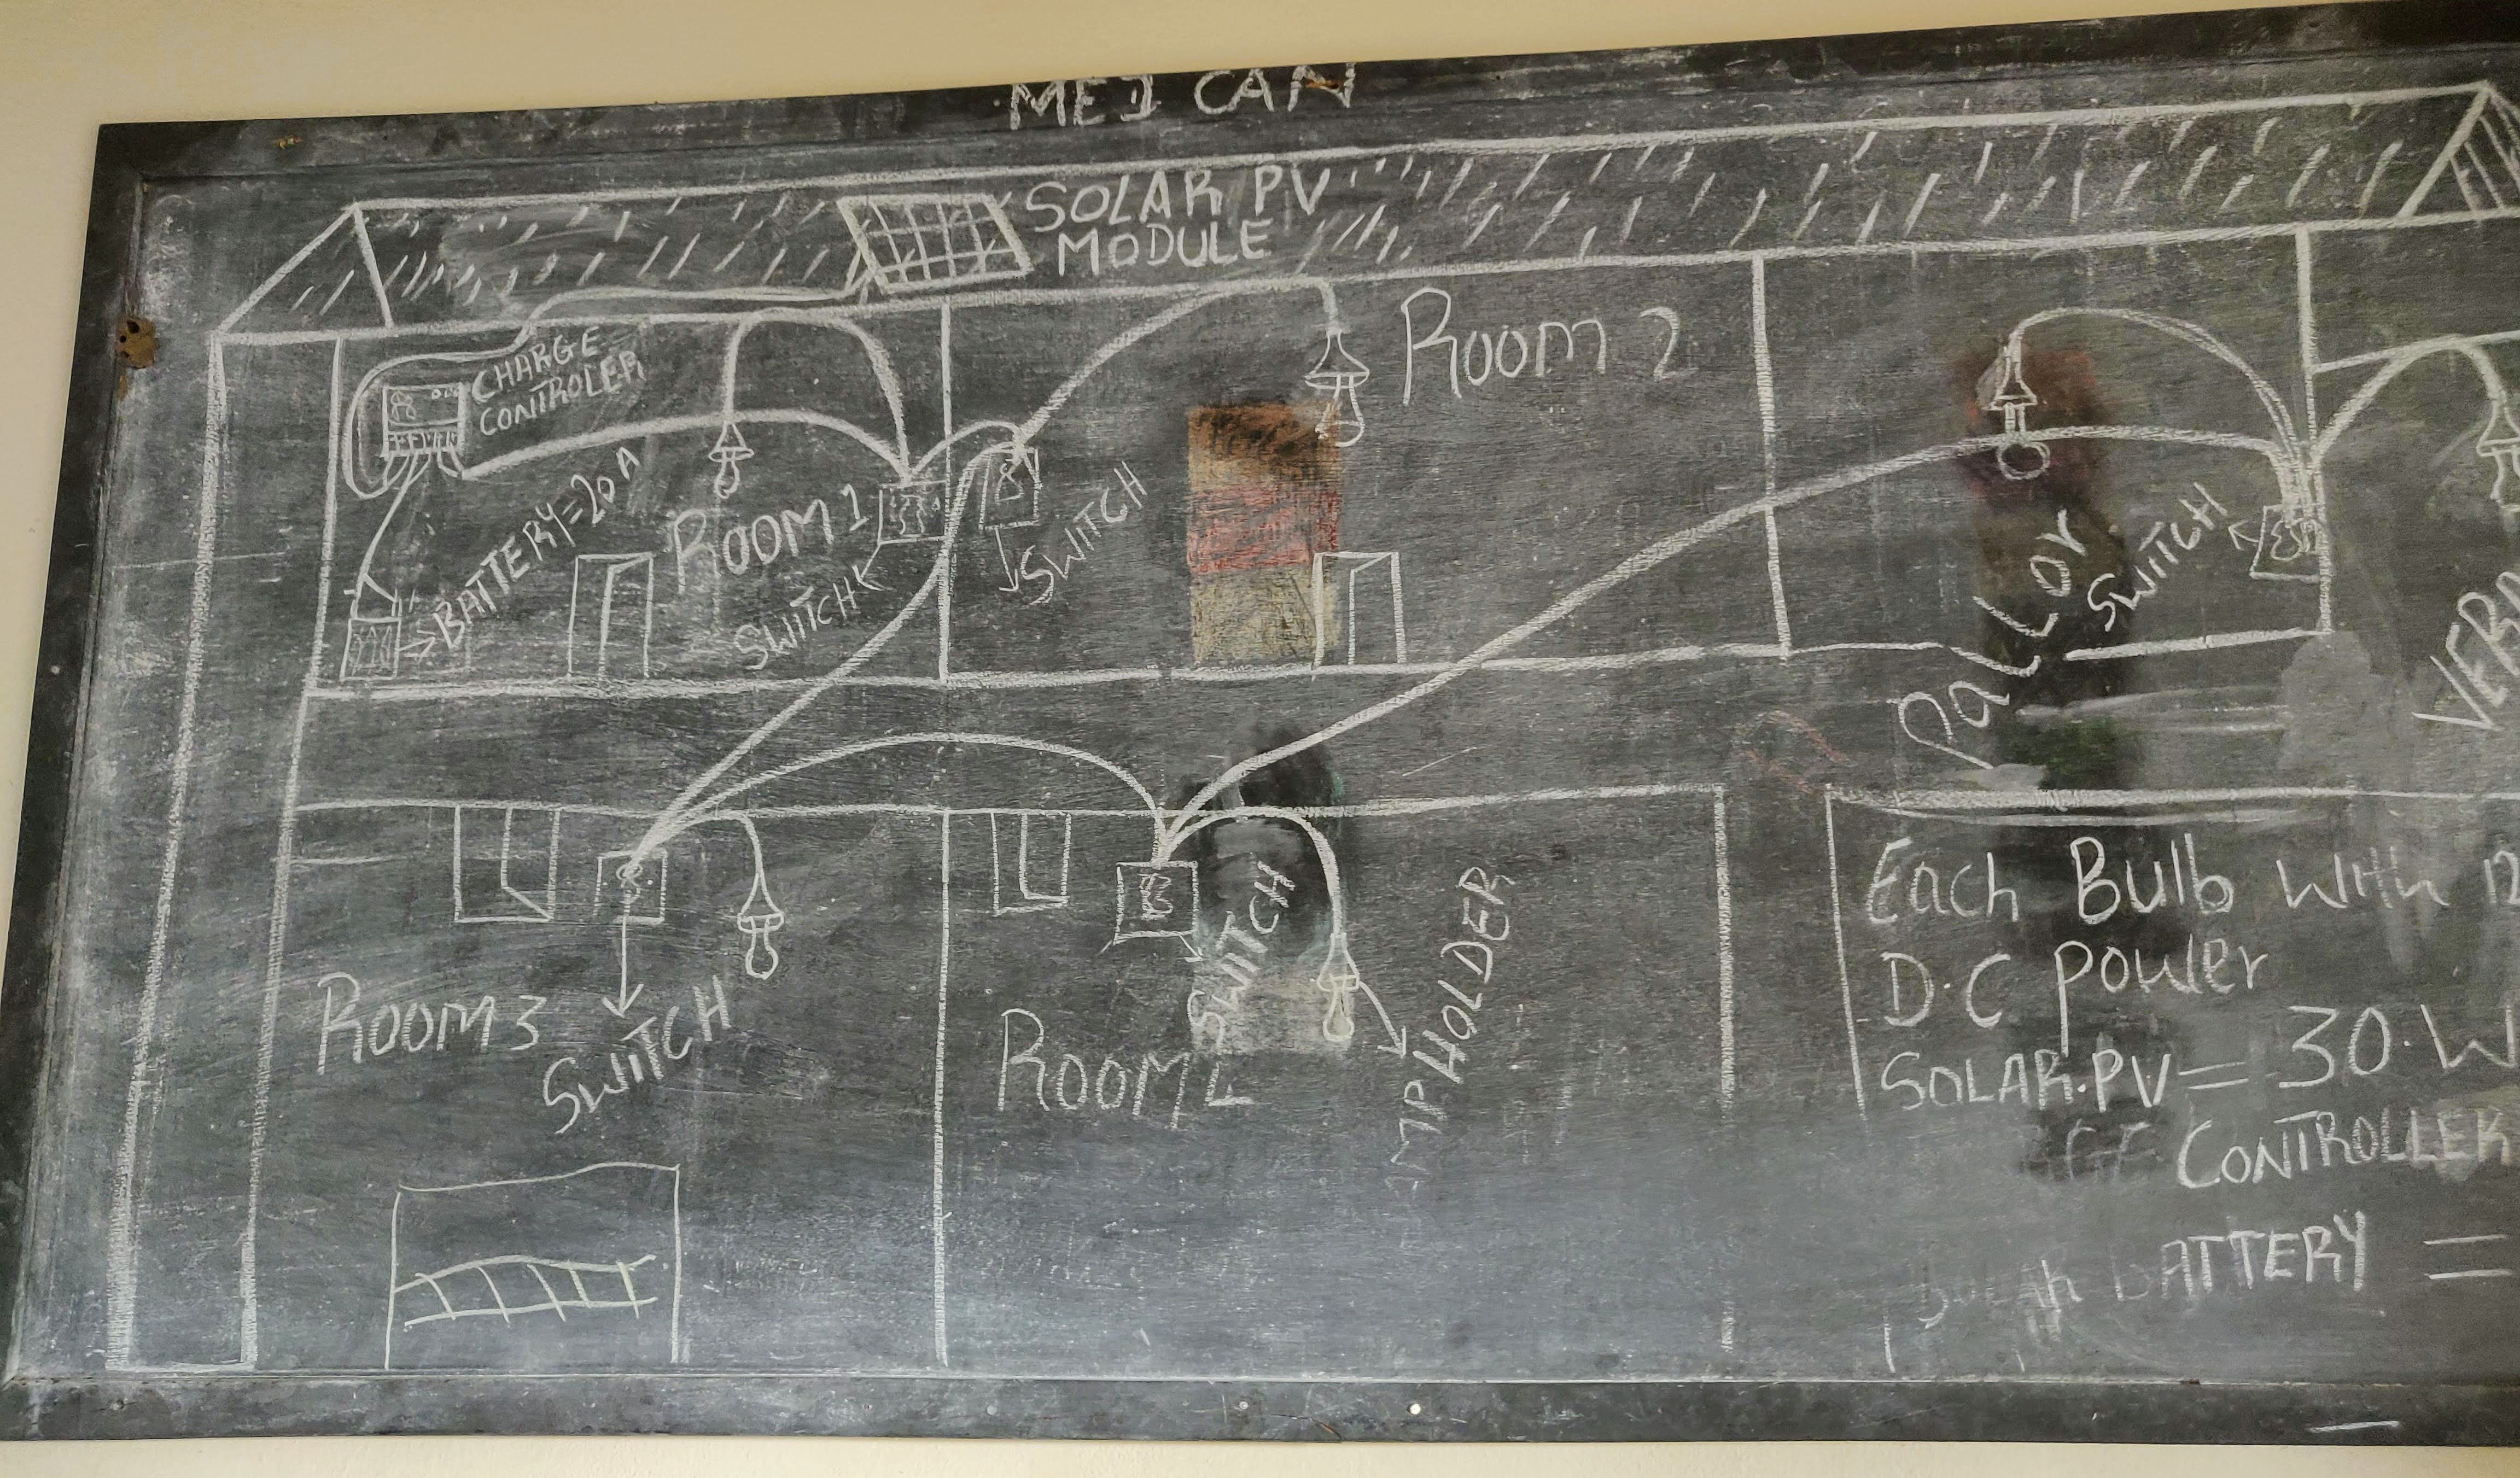 SOLAR PV
MODULE
CHARGE
CONTROLER
ROOM 2
BATTERY=20A
ROOM 1
SWITCH
SWITCH
SWITCH
PALOY
ROOM 3
SWITCH
ROOM
SWITCH
HOLDER
Each Bulb With
D.C Power
SOLAR.PV = 30.W
CONTROLLER
SOLAR BATTERY =